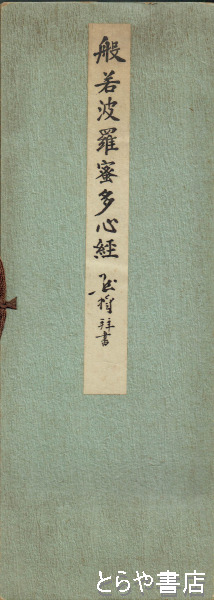 般若波羅蜜多心経
拝書
とらや書店